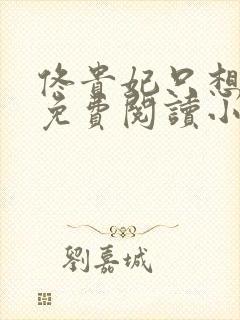 佟貴妃只想
免費閱讀小
劉嘉城